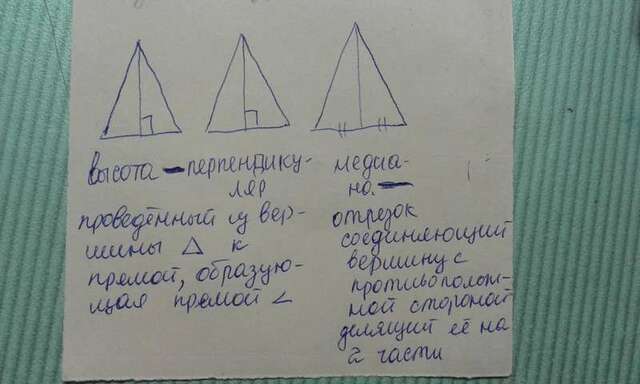 высота - перпендику-
ляр
проведённый из вер-
шины △ к
прямой, образую-
щая прямой ∠
медиа-
на. -
отрезок
соединяющий
вершину с
противополож-
ной стороной
делящий её на
2 части